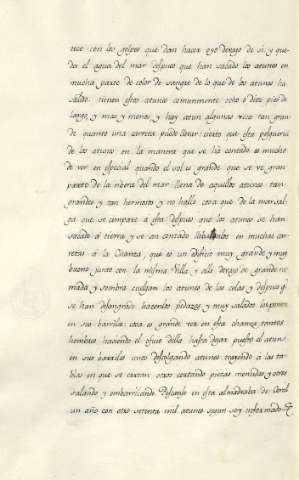 tece con los golpes que dan hacia oyo debajo de si y que
da el agua del mar despues que han sacado los atunes en
mucha parte de color de sangre de lo que de los atunes ha
salido. tienen estos atunes comunmente ocho o diez pies de
largo, y mas y menos y hay atun algunas vez tan gran
de quanto una carreta puede llevar: cierto que esta pesqueria
de los atunes en la manera que se ha contado es mucho
de ver en especial quando el sol es grande que se ve gran
parte de la ribera del mar llena de aquellos atunes tan
grandes y tan hermosos y no halla cosa que de la mar sal
ga que se compare a esta despues que los atunes se han
sacado a tierra y se an contado llebanlos en muchas car
retas a la Chanca, que es un edificio muy grande y muy
bueno junto con la misma Villa, y alli debajo de grande
y sombra cuelgan los atunes de las colas y despues q
se han desangrado hacenlos pedazos y muy salados los ponen
en sus barriles: cosa es grande ver en esta chanca tantos
hombres haciendo el oficio della hasta dejar puesto el atun
en sus barriles unos descolgando atunes trayendo a las ta
blas en que se cortan otros cortando piezas menudas y otros
salando y embarrilando. Pescanse en esta almadraba de Conil
un año con otro setenta mil atunes segun soy informado